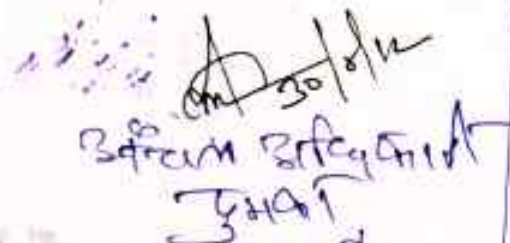 30/8/12
अंचल अधिकारी
दुमका